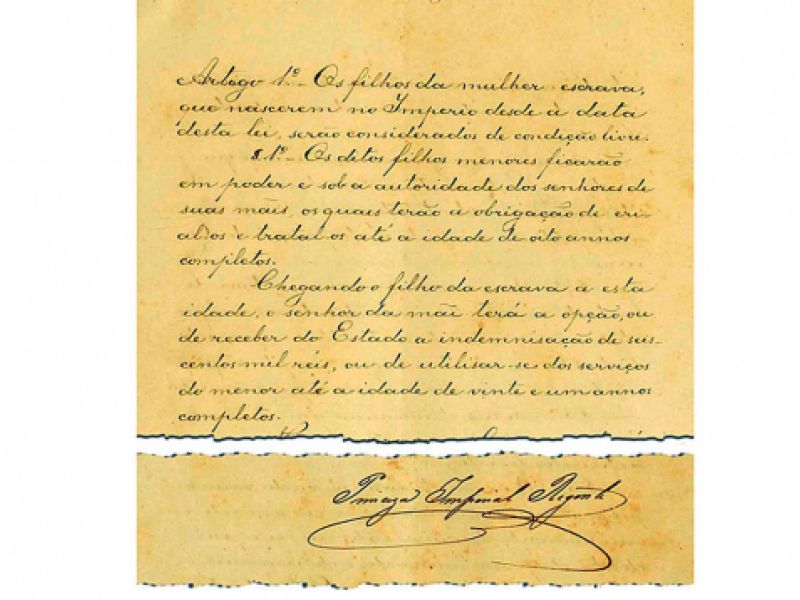 Artogo 1º - Os filhos da mulher escrava,
que nascerem no Imperio desde a data
desta lei, serão considerados de condição livre.
§.1º - Os ditos filhos menores ficarão
em poder e sob a autoridade dos senhores de
suas mãis, os quais terão a obrigação de cri-
al-os e tratal-os até a idade de oito annos
completos.
Chegando o filho da escrava a esta
idade, o senhor da mãi terá a opção, ou
de receber do Estado a indemnisação de seis-
centos mil réis, ou de utilisar-se dos serviços
do menor até a idade de vinte e um annos
completos.
Princeza Imperial Regente